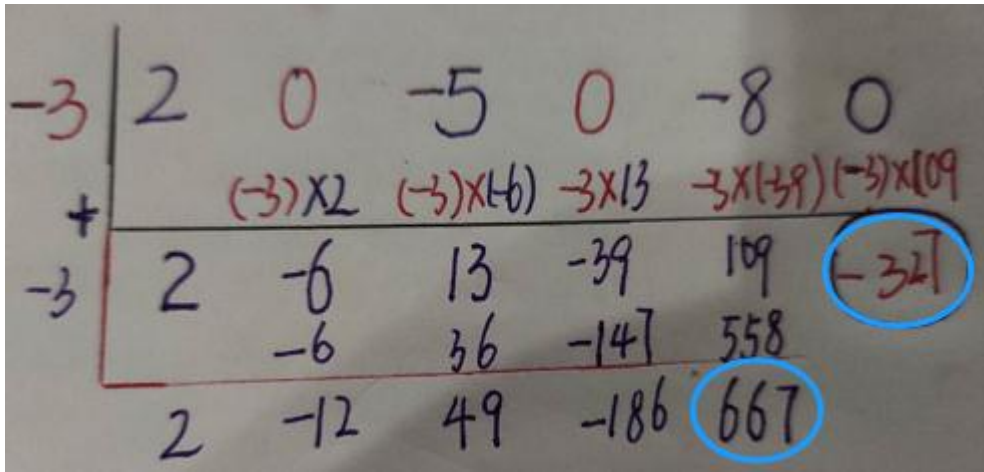 -3 2 0 -5 0 -8 0
+ (-3)×2 (-3)×(-6) -3×13 -3×(-39) (-3)×109
-3 2 -6 13 -39 109 -327
-6 36 -147 558
2 -12 49 -186 667